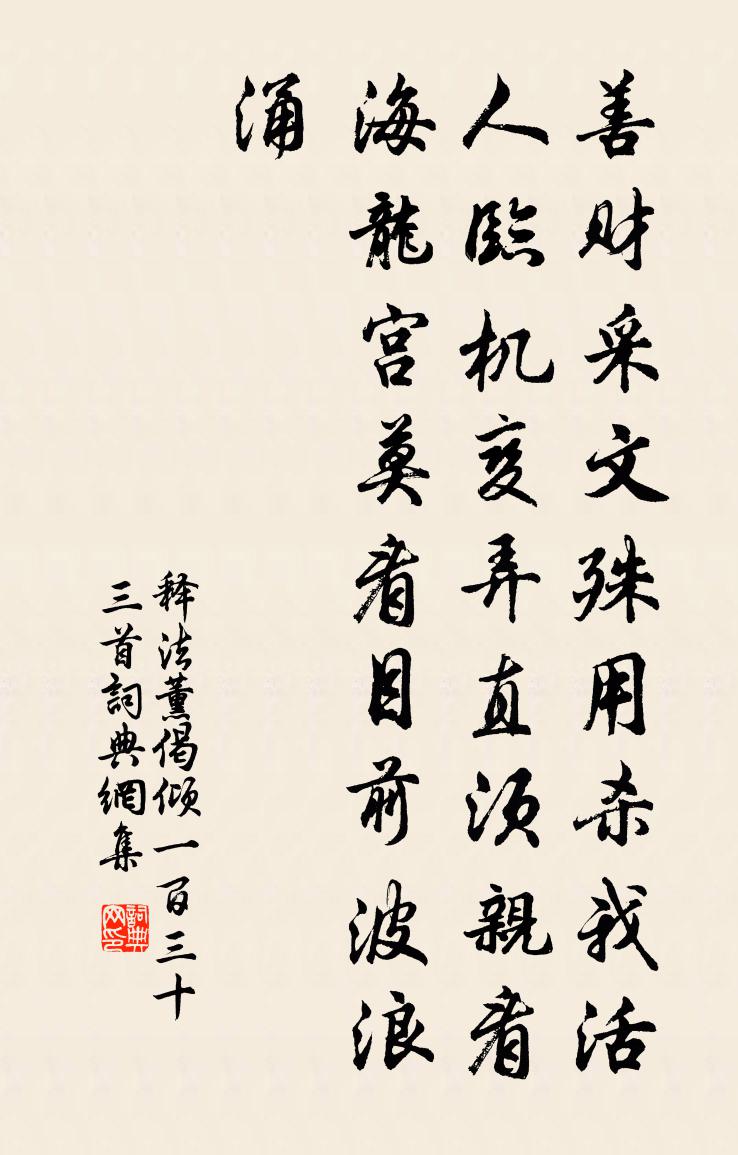 善财采文殊用杀我活
人臨机变弄直须親看
海龍宫莫看目前波浪
涌
释法薰偈倾一百三十
三首詞典網集
詞典网印